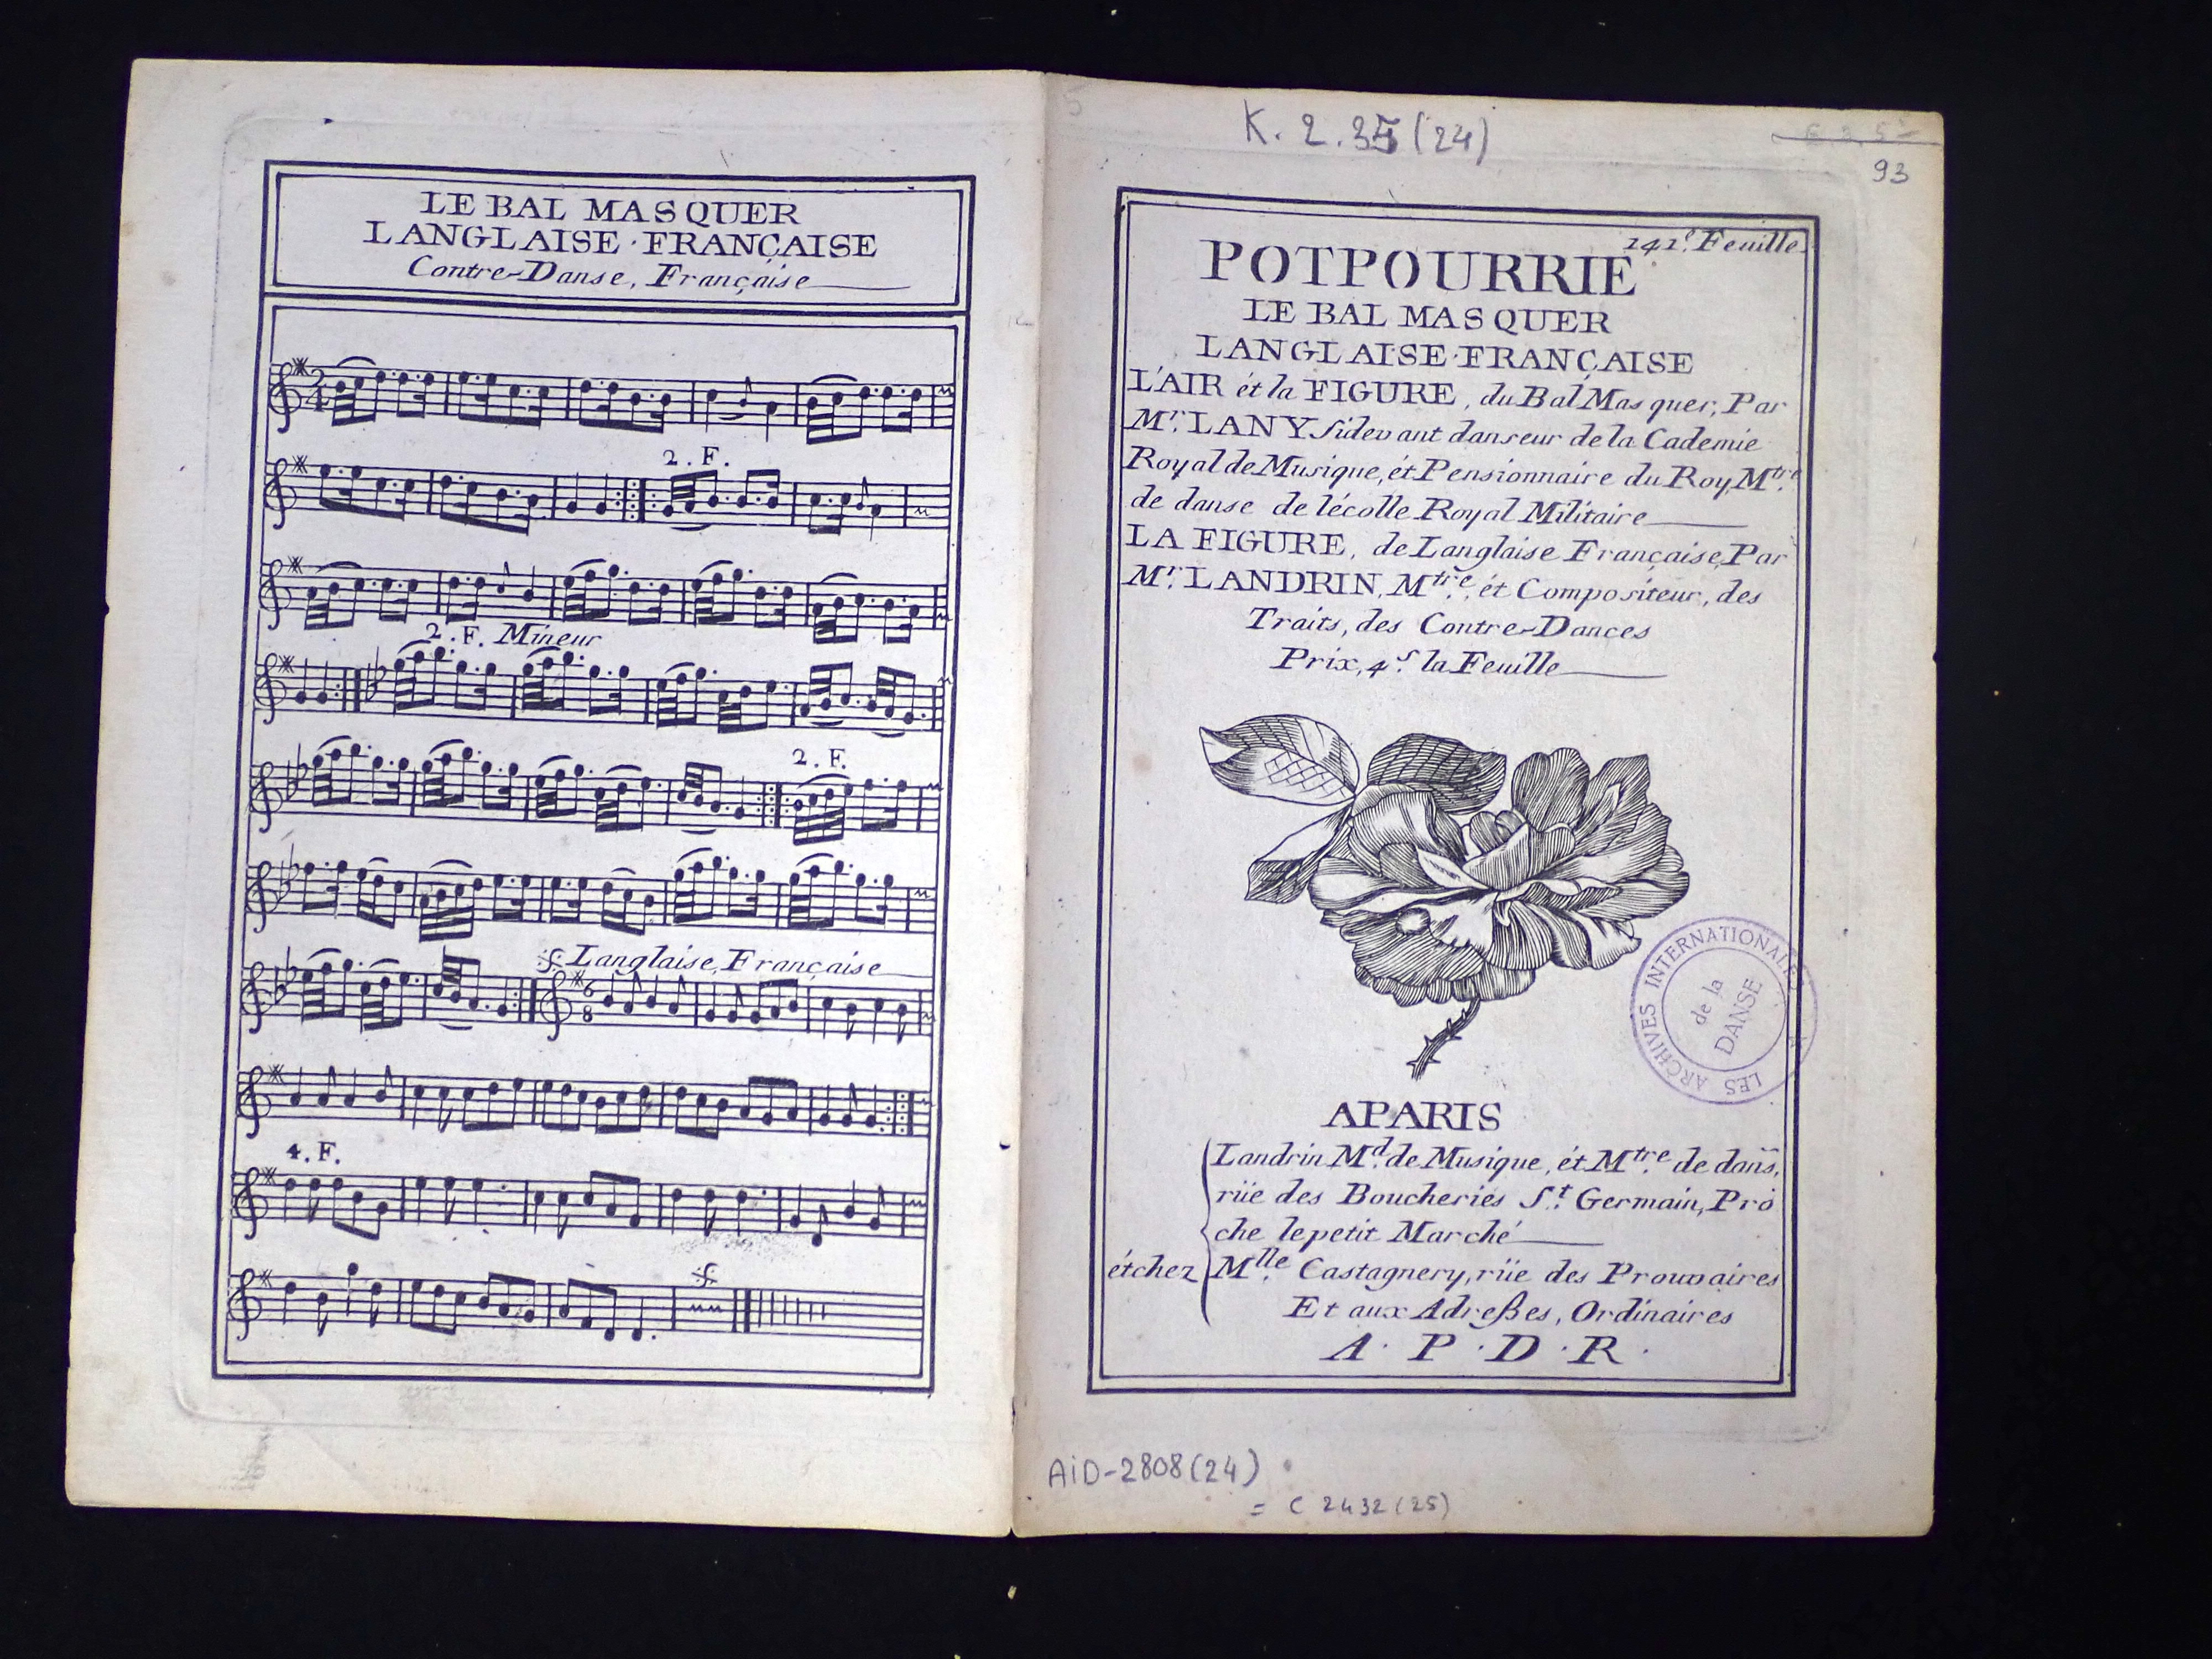 LE BAL MASQUER
LANGLAISE·FRANÇAISE
Contre-Danse, Française
2. F.
2. F. Mineur
2. F.
Langlaise, Française
4. F.
K. 2. 35 (24)
93
141.e Feuille.
POTPOURRIE
LE BAL MASQUER
LANGLAISE·FRANÇAISE
L'AIR ét la FIGURE, du Bal Masquer, Par
Mr. LANY Sidevant danseur de la Cademie
Royal de Musique, ét Pensionnaire du Roy, Mtre.
de danse de lécolle Royal Militaire
LA FIGURE, de Langlaise Française, Par
Mr. LANDRIN, Mtre. ét Compositeur, des
Traits, des Contre-Dances
Prix, 4s. la Feuille
LES ARCHIVES INTERNATIONALES
de la
DANSE
APARIS
Landrin Md. de Musique, ét Mtre de dans,
rüe des Boucheries St. Germain, Pro
che le petit Marché
étchez Mlle. Castagnery, rüe des Prouvaires
Et aux Adreßes, Ordinaires
A · P · D · R ·
AID-2808(24)
= C 2432 (25)